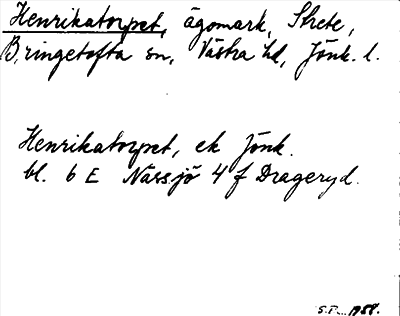 Henrikatorpet, ägomark, Strete,
Bringetofta sn, Västra hd, Jönk. l.
Henrikatorpet, ek Jönk.
bl. 6 E Nässjö 4 f Drageryd.
S.P. 1958.